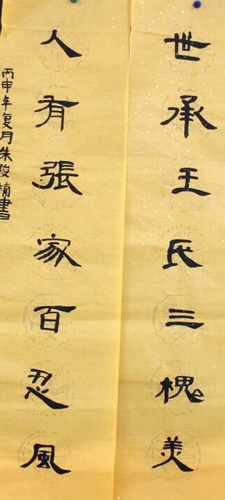 世承王氏三槐美
人有張家百忍風
丙申年夏月朱俊楠書